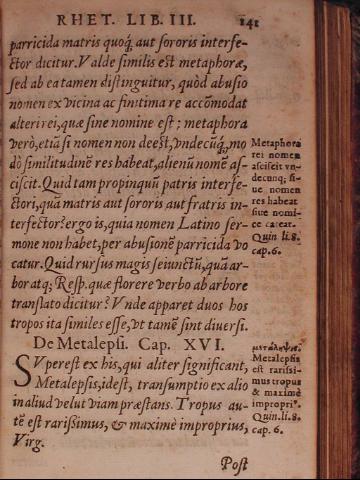 RHET. LIB. III. 141
parricida matris quoq́; aut sororis interfe-
ctor dicitur. Valde similis est metaphoræ,
sed ab ea tamen distinguitur, quòd abusio
nomen ex vicina ac finitima re accõmodat
alteri rei, quæ sine nomine est; metaphora
verò, etiã si nomen non deest, vndecũq́, mo
dò similitudinẽ res habeat, alienũ nomẽ as-
ciscit. Quid tam propinquũ patris interfe-
ctori, quà matris aut sororis aut fratris in-
terfector? ergo is, quia nomen Latino ser-
mone non habet, per abusionẽ parricida vo
catur. Quid rursus magis seiunctũ, quã ar-
bor atq; Resp. quæ florere verbo ab arbore
translato dicitur? Vnde apparet duos hos
tropos ita similes esse, vt tamẽ sint diuersi.
Metaphora
rei nomen
asciscit vn-
decunq; si-
ue nomen
res habeat
siue nomi-
ne careat.
Quin li.8.
cap.6.
De Metalepsi. Cap. XVI.
SVperest ex his, qui aliter significant,
Metalepsis, idest, transumptio ex alio
in aliud velut viam præstans. Tropus au-
tẽ est rarissimus, & maximè improprius,
Virg.
μετάληψις.
Metalepsis
est rarissi-
mus tropus
& maximè
impropri⁹.
Quin.li.8.
cap.6.
Post